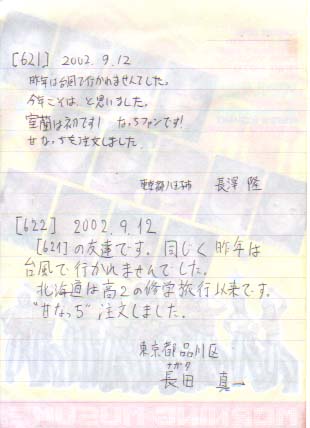 [621] 2002.9.12
昨年は台風で行かれませんでした。
今年こそは、と思いました。
室蘭は初です! なっちファンです!
甘なっちを注文しました
東京都八王子市 長澤 隆
[622] 2002.9.12
[621]の友達です。同じく昨年は
台風で行かれませんでした。
北海道は高2の修学旅行以来です。
"甘なっち"注文しました。
東京都品川区
ナガタ
長田 真一